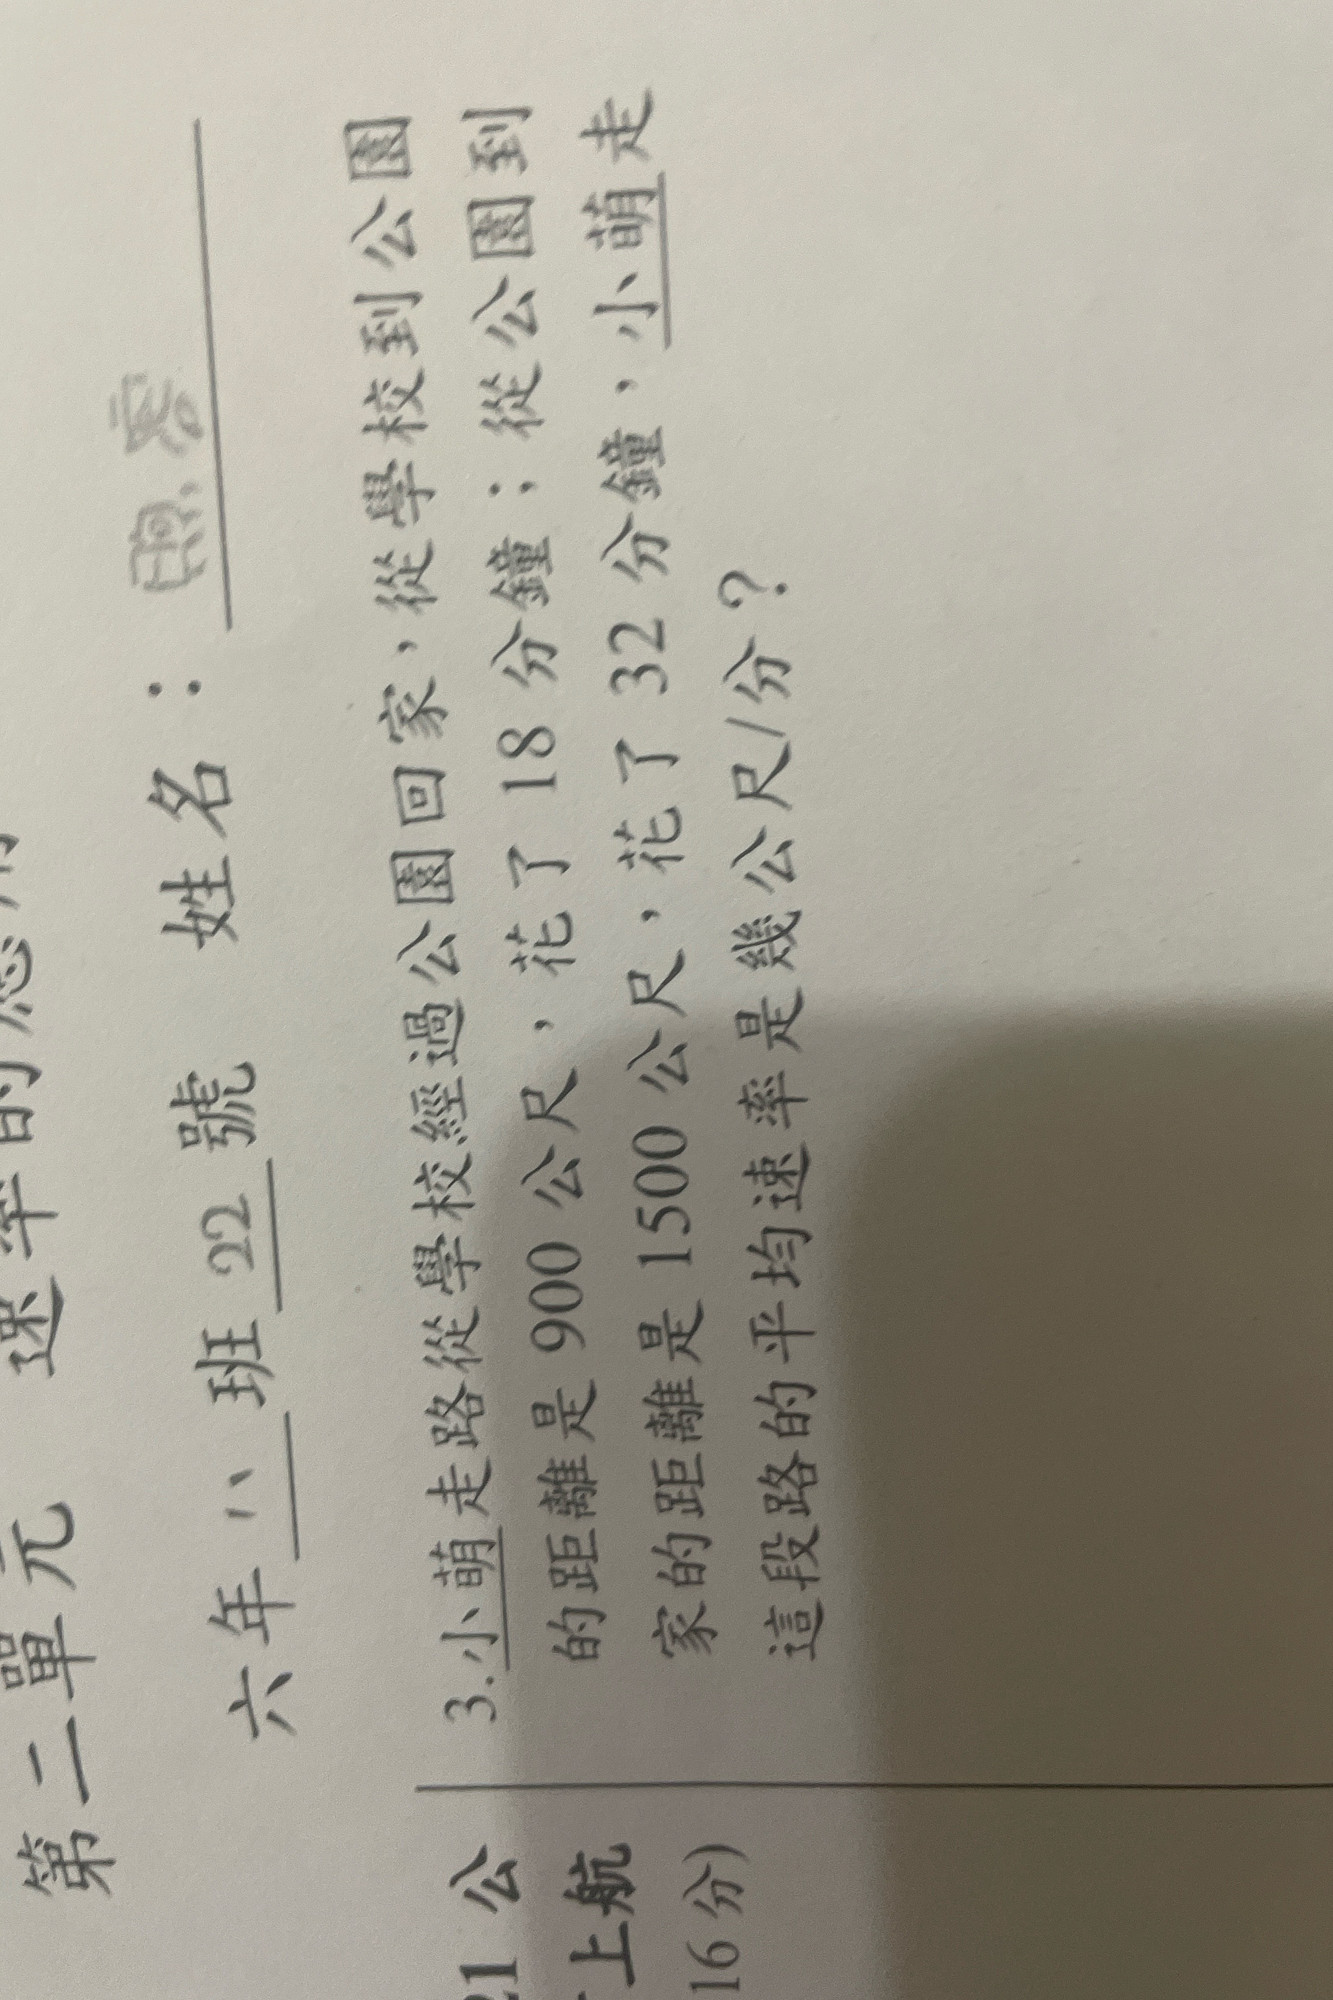 第二單元 速率的應用
六年 八 班 22 號 姓名：
3.小萌走路從學校經過公園回家，從學校到公園
的距離是 900 公尺，花了 18 分鐘；從公園到
家的距離是 1500 公尺，花了 32 分鐘，小萌走
這段路的平均速率是幾公尺/分？
21 公
上航
16 分)